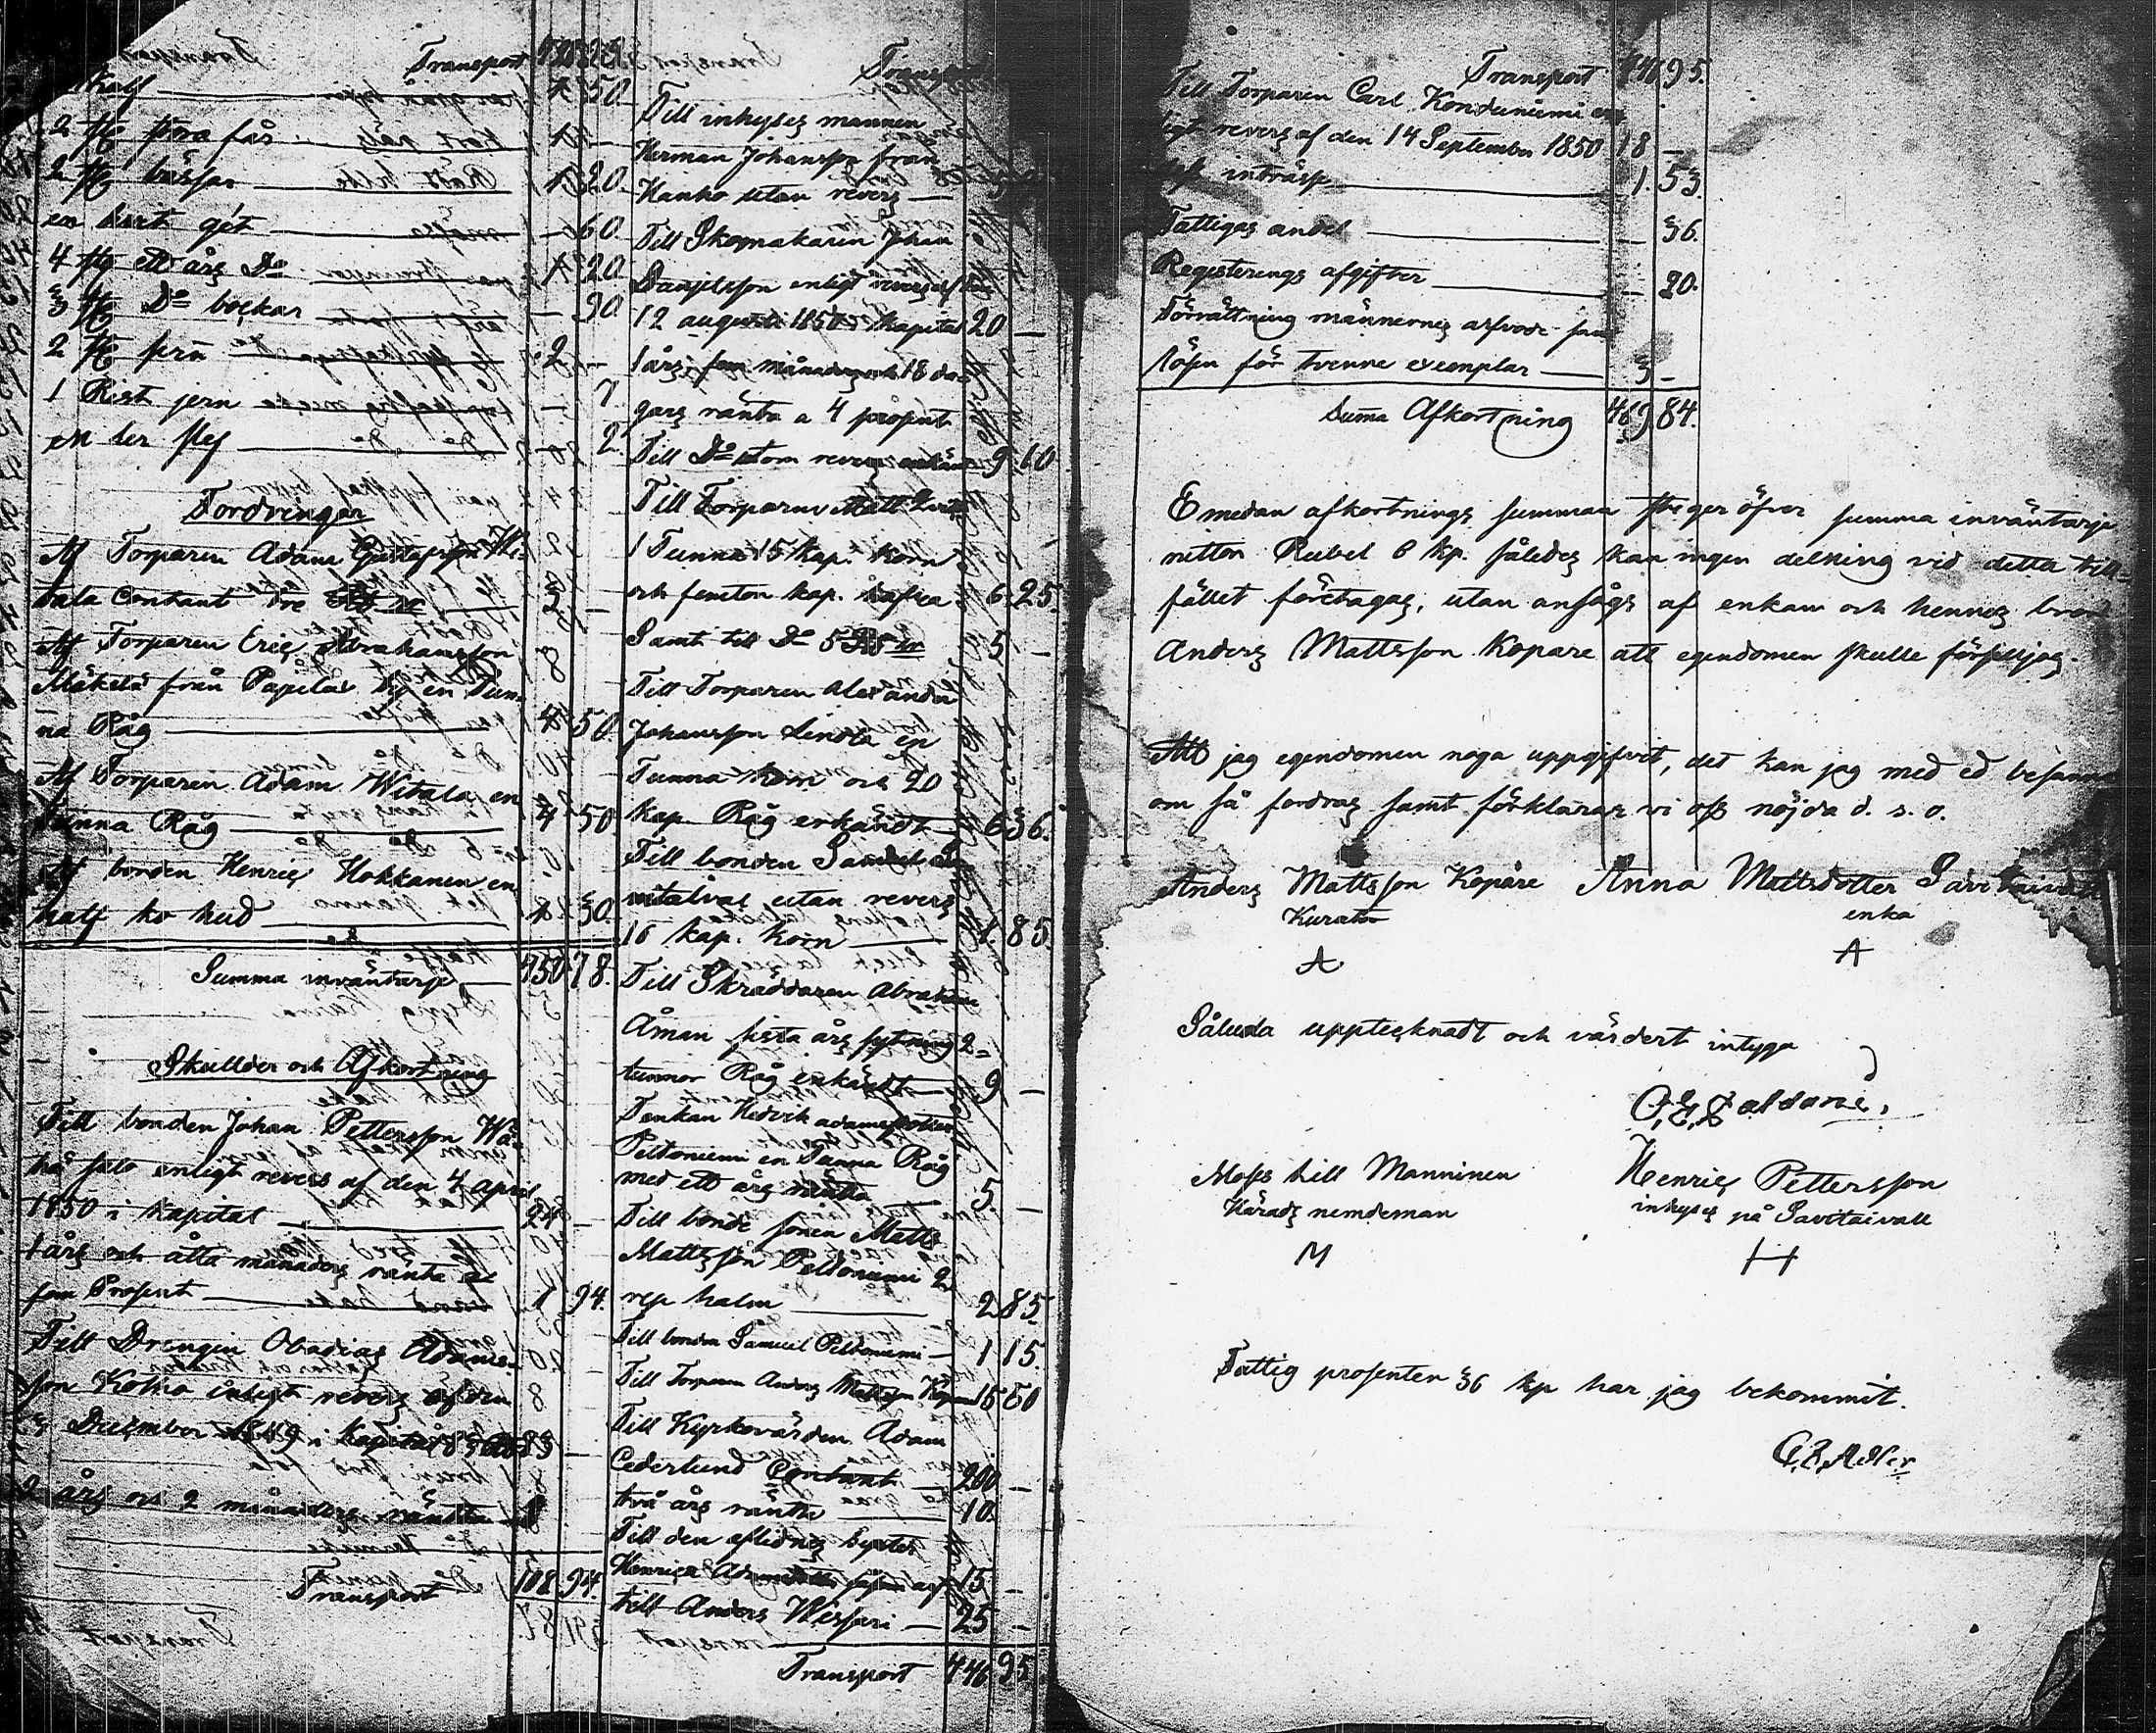 Transport
Kalf 1 50.
2 st stora får 1 –
2 st bässar 1 20
en hvit gét – 60.
4 st ett års Do 1 20.
3 st Do bockar – 90
2 st svin 2 –
1 Rist jern – 7.
en ler – 2.
Fordringar
Af Torparen Adam Gustafsson Wi-
tala Contant tre 3 –
Af Torparen Eric Abrahamsson
Mäkelä från en Tun-
na Råg 4 50.
Af Torparen Adam Witala en
Tunna Råg 4 50
Af bonden Henric Hokkanen en
half ko hud 1 30.
Summa inväntarje 450 78.
Skullder och Afkortning
Till bonden Johan Pettersson Wä-
hä salo enligt revers af den 4 april
1850 i kapital 24 –
1 års och åtta månaders ränta a
fem Prosent 1 94.
Till Drengen Obadias Adams-
son Kotka enligt revers af den
Deczember 1849 i kapital 83 83 –
2 års och 2 månaders räntta
Transport 108. 94.
Transport
Till inhyses mannen
Herman Johansson från
Hanko utan revers
Till Skomakaren Johan
Danjelsson enligt revers af den
12 augusti 1850 kapital 20 –
1 års fem månaders och 18 da-
gars ränta a 4 prosent
Till Do utom revers erkänt 9. 10
Till Torparen Matt
1 Tunna 15 kap. korn
och femton kap. hafra 6. 25.
Samt till Do 5 5 –
Till Torparen Alexander
Johansson Lindla en
Tunna korn och 20
kap. Råg erkändt 6 36.
Till bonden Samuel
utan revers
16 kap. korn 1. 85.
Till Skräddaren Abraham
Åman sista års sytning 2-
tunnor Råg erkändt 9 –
T enkan Hedvik adamsdotter
Peltoniemi en Tunna Råg
med ett års ränta 5. –
Till bonde sonen Matts
Mattsson Peltoniemi 2
rep halm 2 85.
Till bonden Samuel Peltoniemi 1 15.
Till Torparen Anders Mattsson Kopare 15 50
Till Kyrkovärden Adam
Cederlund Contant 200 –
två års ränta 10.
Till den aflidnes syster
Henrica Adamsdotter arf 15 –
till Anders Wessari 25 –
Transport 446 95
Transport 446 95.
Till Torparen Carl Konduniemi en-
ligt revers af den 14 September 1850 18 –
inträsse 1. 53.
Fattigas andel – 36.
Registerings afgifter – 20.
Förrättning männernes arfvode samt
lösen för tvenne exemplar 3 –
Summa Afkortning 469. 84.
Emedan afkortnings summan stiger öfver summa inväntarje
nitton Rubel 6 kp. således kan ingen delning vid detta till-
fället företagas, utan ansågs af enkan och hennes bror
Anders Mattsson Kopare att egendomen skulle försäljas.
Att jag egendomen noga uppgifvit, det kan jag med ed besanna
om så fordras samt förklarar vi oss nöjda d. s. o.
Anders Mattsson Kopare Anna Mattsdotter Savitaivall
Kurator enka
A A
Såluda upptecknadt och värdert intyga
Moses Lill Manninen Henric Pettersson
Härads nemdeman inhyses på Savitaivall
M H
Fattig prosenten 36 kp har jag bekommit.